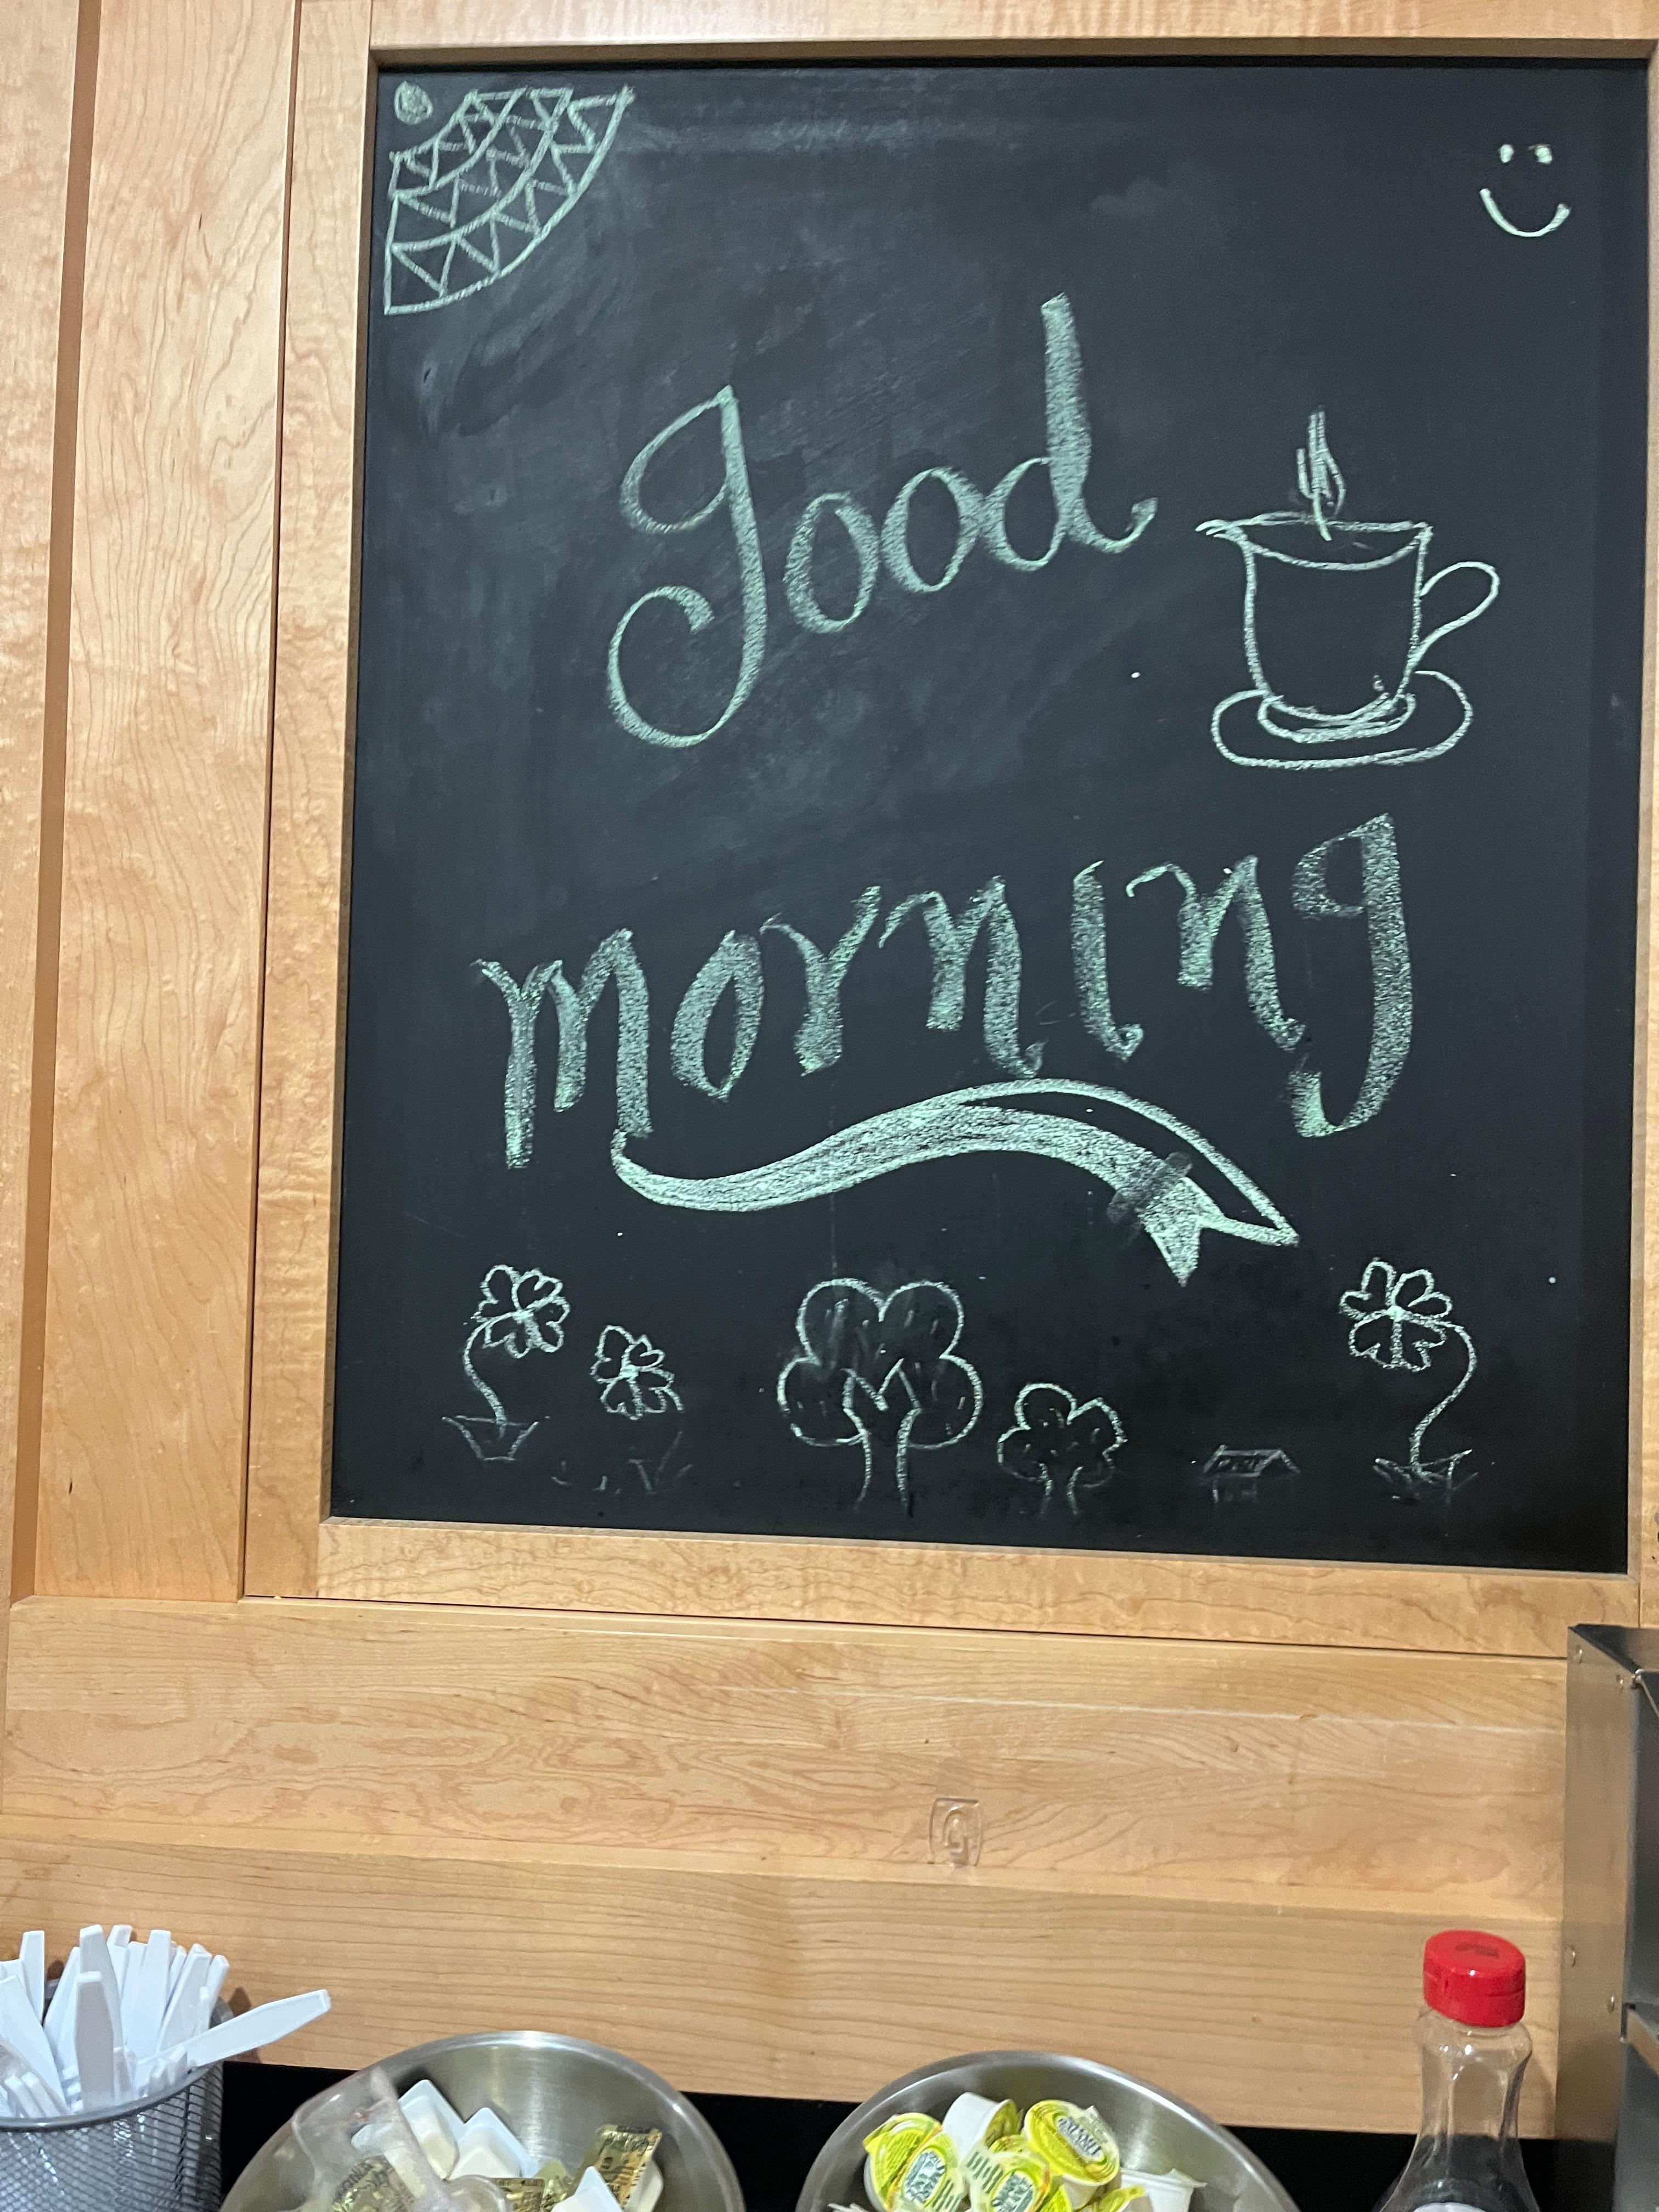 Good
morning